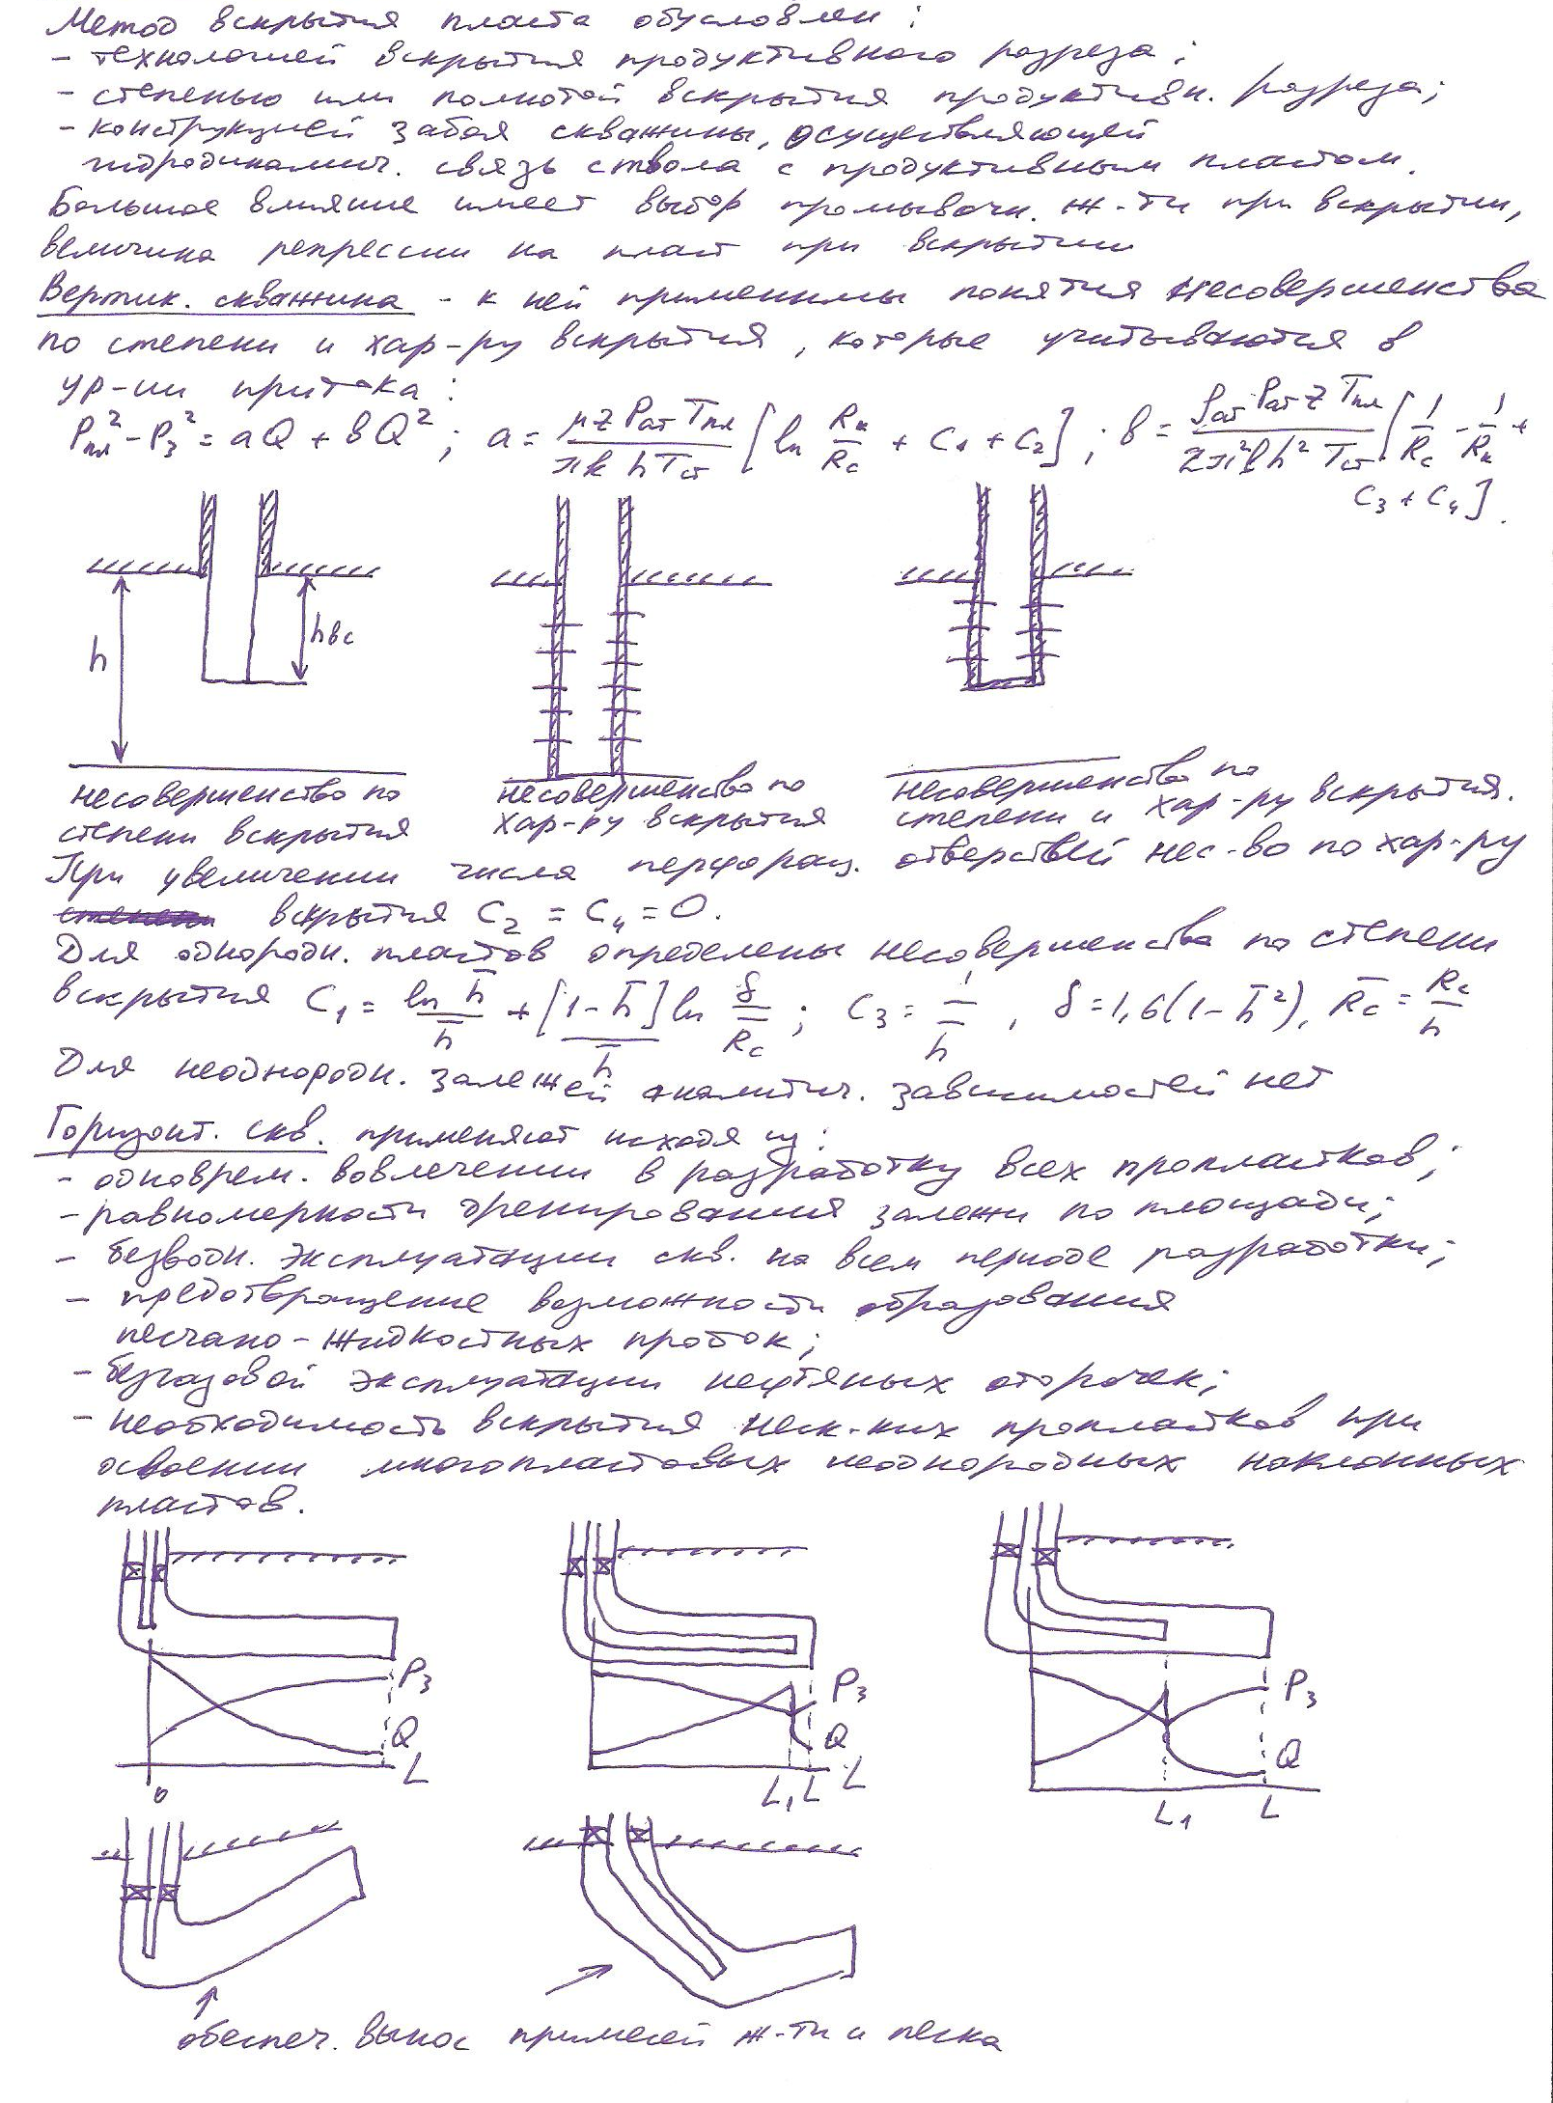 Метод вскрытия пласта обусловлен :
- технологией вскрытия продуктивного разреза ;
- степенью или полнотой вскрытия продуктивн. разреза ;
- конструкцией забоя скважины, осуществляющей
гидродинамич. связь ствола с продуктивным пластом.
Большое влияние имеет выбор промывочн. ж-ти при вскрытии,
величина репрессии на пласт при вскрытии
Вертик. скважина - к ней применимы понятия несовершенства
по степени и хар-ру вскрытия, которые учитываются в
ур-ии притока :
Pпл² - Pз² = aQ + bQ² ; a = μ z Pат Tпл / πk h Tст [ln Rк/Rс + C₁ + C₂] ; b = ρат Pат z Tпл / 2π² l h² Tст [1/Rс - 1/Rк +
C₃ + C₄].
h hвс
несовершенство по степени вскрытия
несовершенство по хар-ру вскрытия
несовершенство по степени и хар-ру вскрытия.
При увеличении числа перфорац. отверстий нес-во по хар-ру
вскрытия C₂ = C₄ = 0.
Для однородн. пластов определены несовершенства по степени
вскрытия C₁ = ln h̄ / h̄ + [1 - h̄] / h̄ ln δ / R̄с ; C₃ = 1 / h̄ , δ = 1,6(1 - h̄²), R̄с = Rс / h
Для неоднородн. залежей аналитич. зависимостей нет
Горизонт. скв. применяют исходя из :
- одноврем. вовлечении в разработку всех пропластков ;
- равномерности дренирования залежи по площади ;
- безводн. эксплуатации скв. на всем периоде разработки ;
- предотвращение возможности образования
песчано-жидкостных пробок ;
- безгазовой эксплуатации нефтяных оторочек ;
- необходимость вскрытия неск-ких пропластков при
освоении многопластовых неоднородных наклонных
пластов.
Pз Q L 0
Pз Q L₁ L L
Pз Q L₁ L
обеспеч. вынос примесей ж-ти и песка